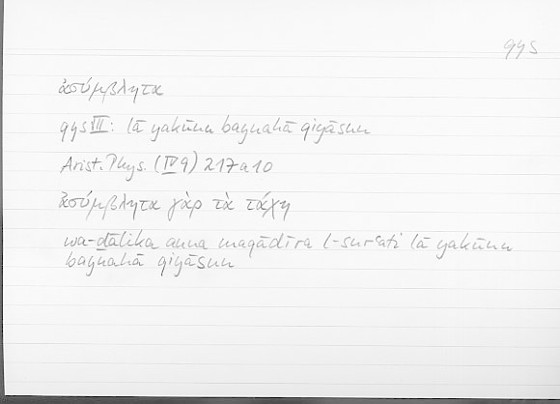 qys
ἀσύμβλητα
qys III: lā yakūnu baynahā qiyāsun
Arist. Phys. (IV 9) 217a10
ἀσύμβλητα γὰρ τὰ τάχη
wa-ḏālika anna maqādīra l-surʿati lā yakūnu
baynahā qiyāsun